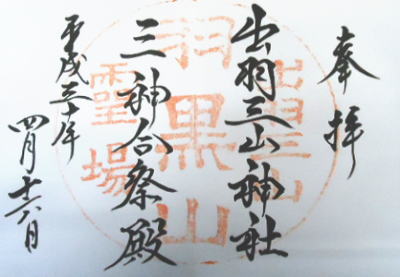 奉拝
出羽三山神社
三神合祭殿
平成三十年
四月十六日
出羽三山
羽黒山
霊場